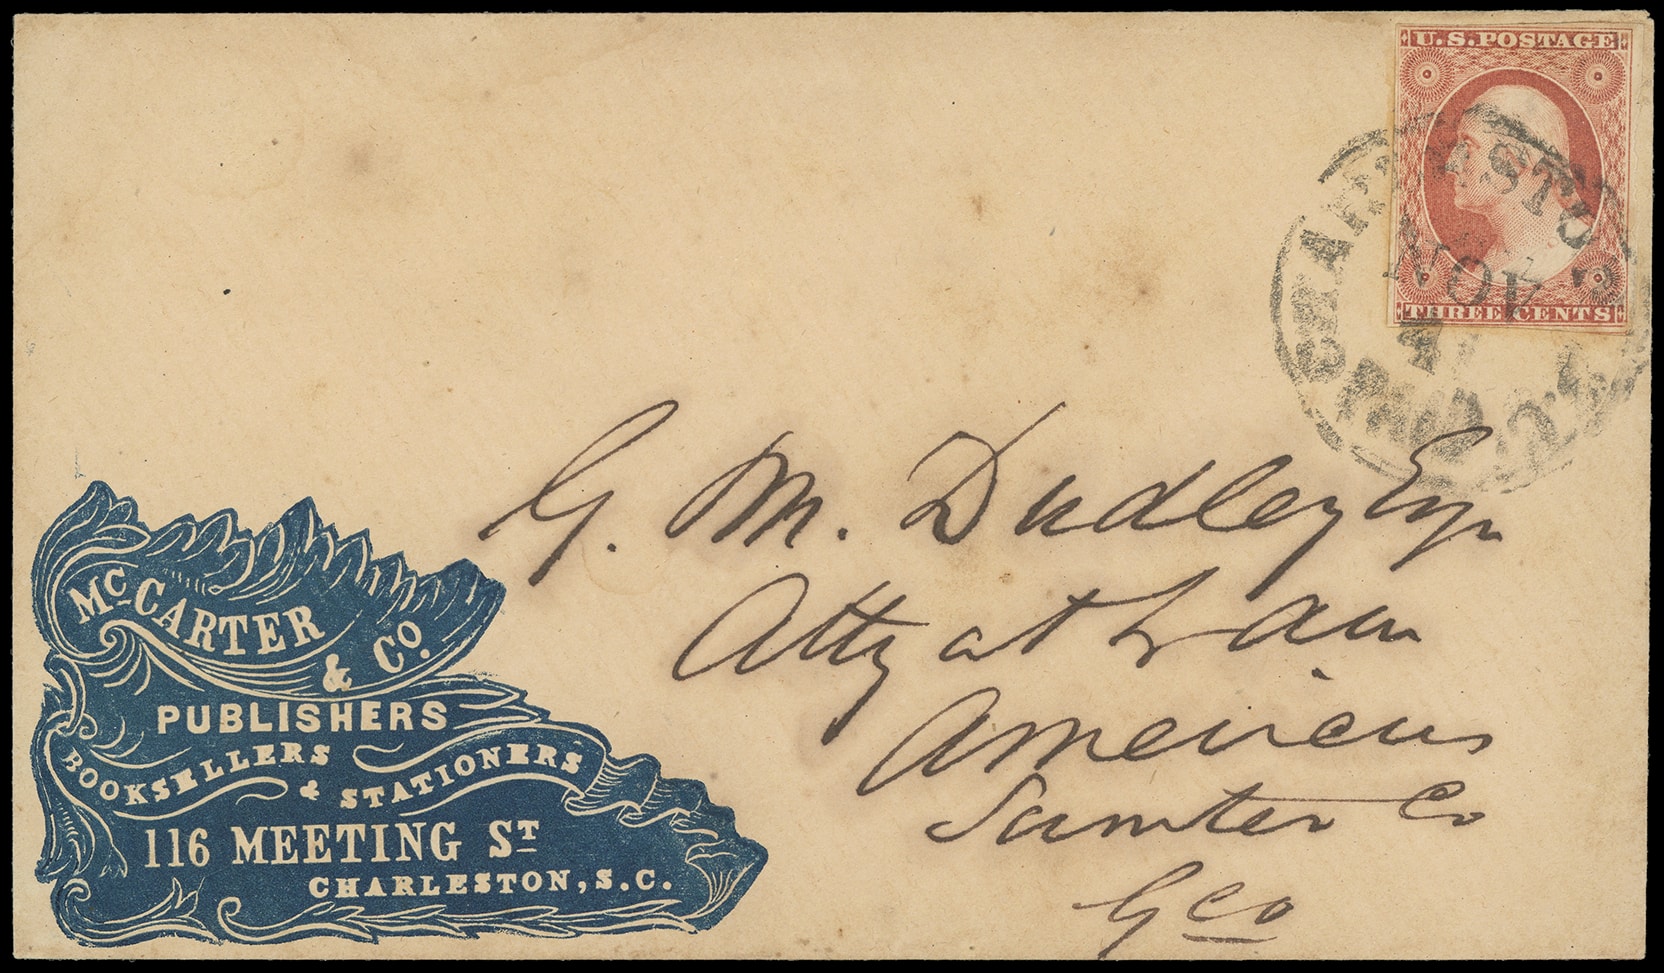 U.S. POSTAGE
THREE CENTS
CHARLESTON
NOV
4
G. M. Dudley Esqr
Atty at Law
Americus
Sumter Co
Geo
McCARTER
& CO.
PUBLISHERS
BOOKSELLERS
& STATIONERS
116 MEETING ST
CHARLESTON, S.C.